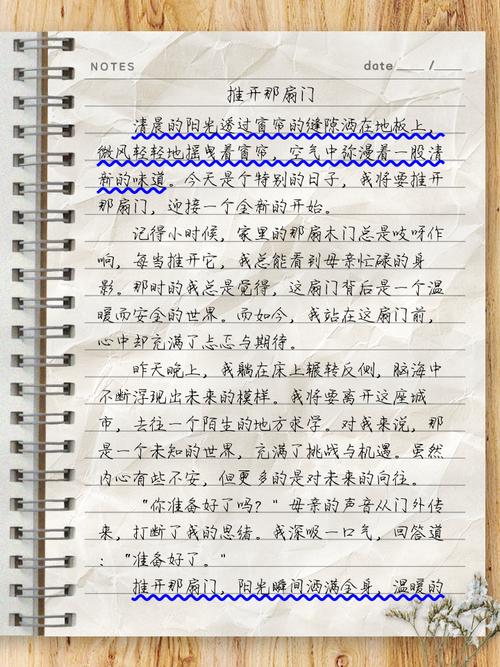 NOTES date ____ / ____
推开那扇门
清晨的阳光透过窗帘的缝隙洒在地板上，
微风轻轻地摇曳着窗帘，空气中弥漫着一股清
新的味道。今天是个特别的日子，我将要推开
那扇门，迎接一个全新的开始。
记得小时候，家里的那扇木门总是吱呀作
响，每当推开它，我总能看到母亲忙碌的身
影。那时的我总是觉得，这扇门背后是一个温
暖而安全的世界。而如今，我站在这扇门前，
心中却充满了忐忑与期待。
昨天晚上，我躺在床上辗转反侧，脑海中
不断浮现出未来的模样。我将要离开这座城
市，去往一个陌生的地方求学。对我来说，那
是一个未知的世界，充满了挑战与机遇。虽然
内心有些不安，但更多的是对未来的向往。
"你准备好了吗？"母亲的声音从门外传
来，打断了我的思绪。我深吸一口气，回答道
："准备好了。"
推开那扇门，阳光瞬间洒满全身，温暖的